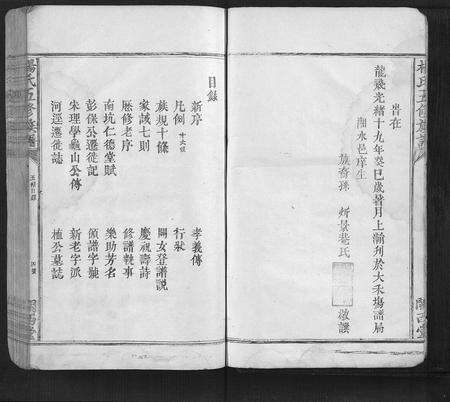 皆在
龍飛光緒十九年癸巳歲暑月上澣刋於大禾塲譜局
湘水邑庠生
族裔孫
敬譔
楊氏五修族譜
關西堂
目錄
新序
凡例 十六條
族規十條
家誡七則
歷修老序
南坑仁德堂賦
彭保公遷徙記
朱理學龜山公傳
河逕遷徙誌
孝義傳
行狀
閨女登譜說
慶祝壽詩
修譜執事
樂助芳名
領譜字號
新老字派
植公墓誌
楊氏五修族譜
五修目錄
關西堂